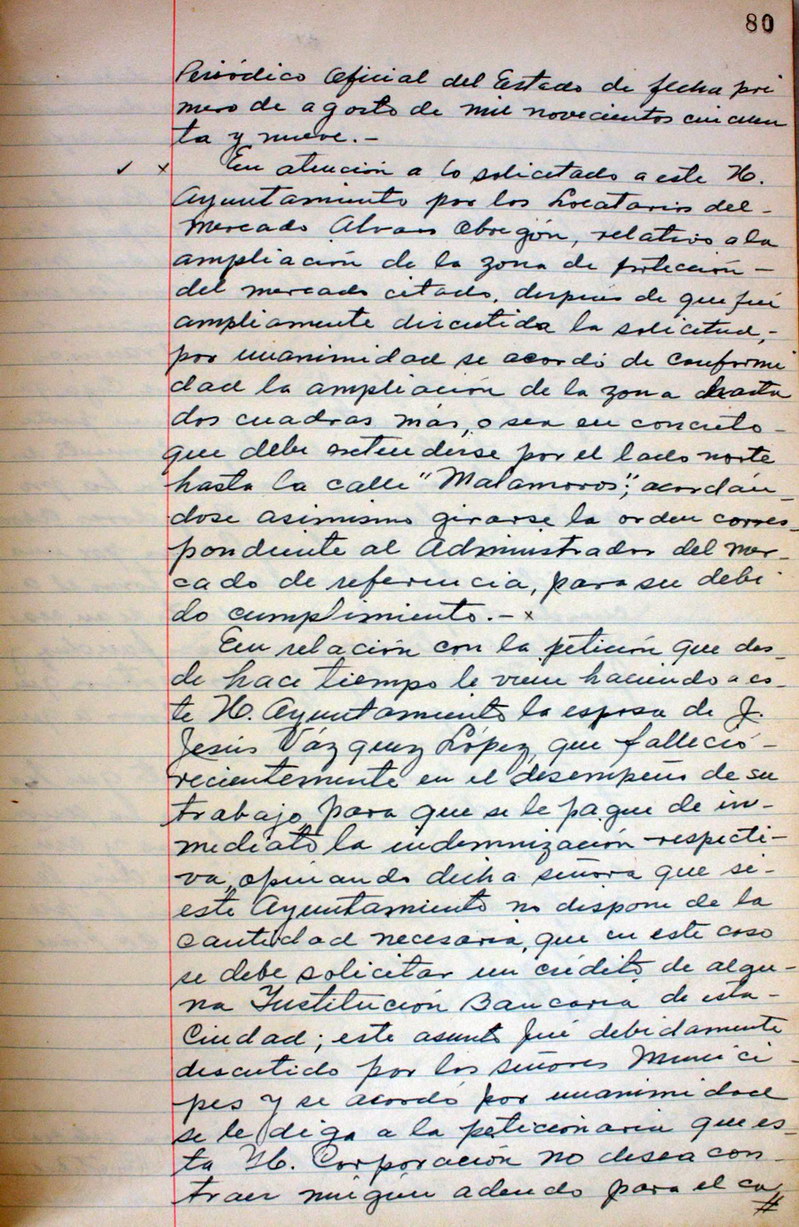 80
Periódico Oficial del Estado de fecha pri
mero de agosto de mil novecientos cincuen
ta y nueve.-
✓ x En atención a lo solicitado a este H.
Ayuntamiento por los Locatarios del-
Mercado Alvaro Obregón, relativo a la
ampliación de la zona de protección-
del mercado citado, después de que fué
ampliamente discutida la solicitud,-
por unanimidad se acordó de conformi
dad la ampliación de la zona hasta
dos cuadras más, o sea en concreto-
que debe extenderse por el lado norte
hasta la calle "Matamoros"; acordán-
dose asimismo girarse la orden corres-
pondiente al Administrador del mer-
cado de referencia, para su debi
do cumplimiento.- x
En relación con la petición que des-
de hace tiempo le viene haciendo a es-
te H. Ayuntamiento la esposa de J.
Jesús Vázquez López, que falleció-
recientemente en el desempeño de su
trabajo, para que se le pague de in-
mediato la indemnización respecti-
va, opinando dicha señora que si-
este Ayuntamiento no dispone de la
cantidad necesaria, que en este caso
se debe solicitar un crédito de algu-
na Institución Bancaria de esta-
Ciudad; este asunto fué debidamente
discutido por los señores Munici-
pes y se acordó por unanimidad
se le diga a la peticionaria que es-
ta H. Corporación no desea con-
traer ningún adeudo para el ca
#